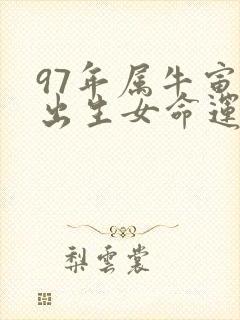 97年属牛宙
出生女命運
梨雲裳